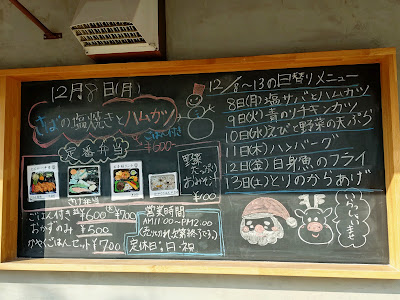 12月8日(月)
さばの塩焼きとハムカツ
ごはん付き
¥600-
定番弁当
野菜
天ぷら
¥100
ごはん付き
¥600
¥700
おかずのみ ¥500
かやくごはんセット ¥700
営業時間
AM11:00~PM2:00
定休日:日・祝
12/8~13の日替りメニュー
8日(月)塩サバとハムカツ
9日(火)青のりチキンカツ
10日(水)えびと野菜の天ぷら
11日(木)ハンバーグ
12日(金)白身魚のフライ
13日(土)とりのからあげ
いらっしゃいませ